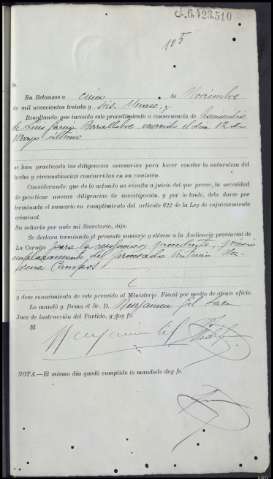 C.6.423.510
105
En Betanzos a cinco de Noviembre
de mil novecientos treinta y seis
Resultando que incoado este procedimiento a consecuencia de
de José García
Mayo último
se han practicado las diligencias necesarias para hacer constar la naturaleza del
hecho y circunstancias concurrentes en su comisión
Considerando que de lo actuado no resulta a juicio del que provee, la necesidad
de practicar nuevas diligencias de investigación, y por lo tanto, debe darse por
terminado el sumario en cumplimiento del artículo 622 de la Ley de enjuiciamiento
criminal
Su señoría por ante mí, Secretario, dijo:
Se declara terminado el presente sumario y elévese a la Audiencia provincial de
La Coruña para la resolución procedente, y previo
emplazamiento del procesado Antonio
Campos
y dese conocimiento de este proveído al Ministerio Fiscal por medio de ajeno oficio
Lo mandó y firma el Sr. D. Benjamín Gil Saez
Juez de Instrucción del Partido, y doy fe.
Benjamín Gil
NOTA.—El mismo día quedó cumplido lo mandado doy fe.